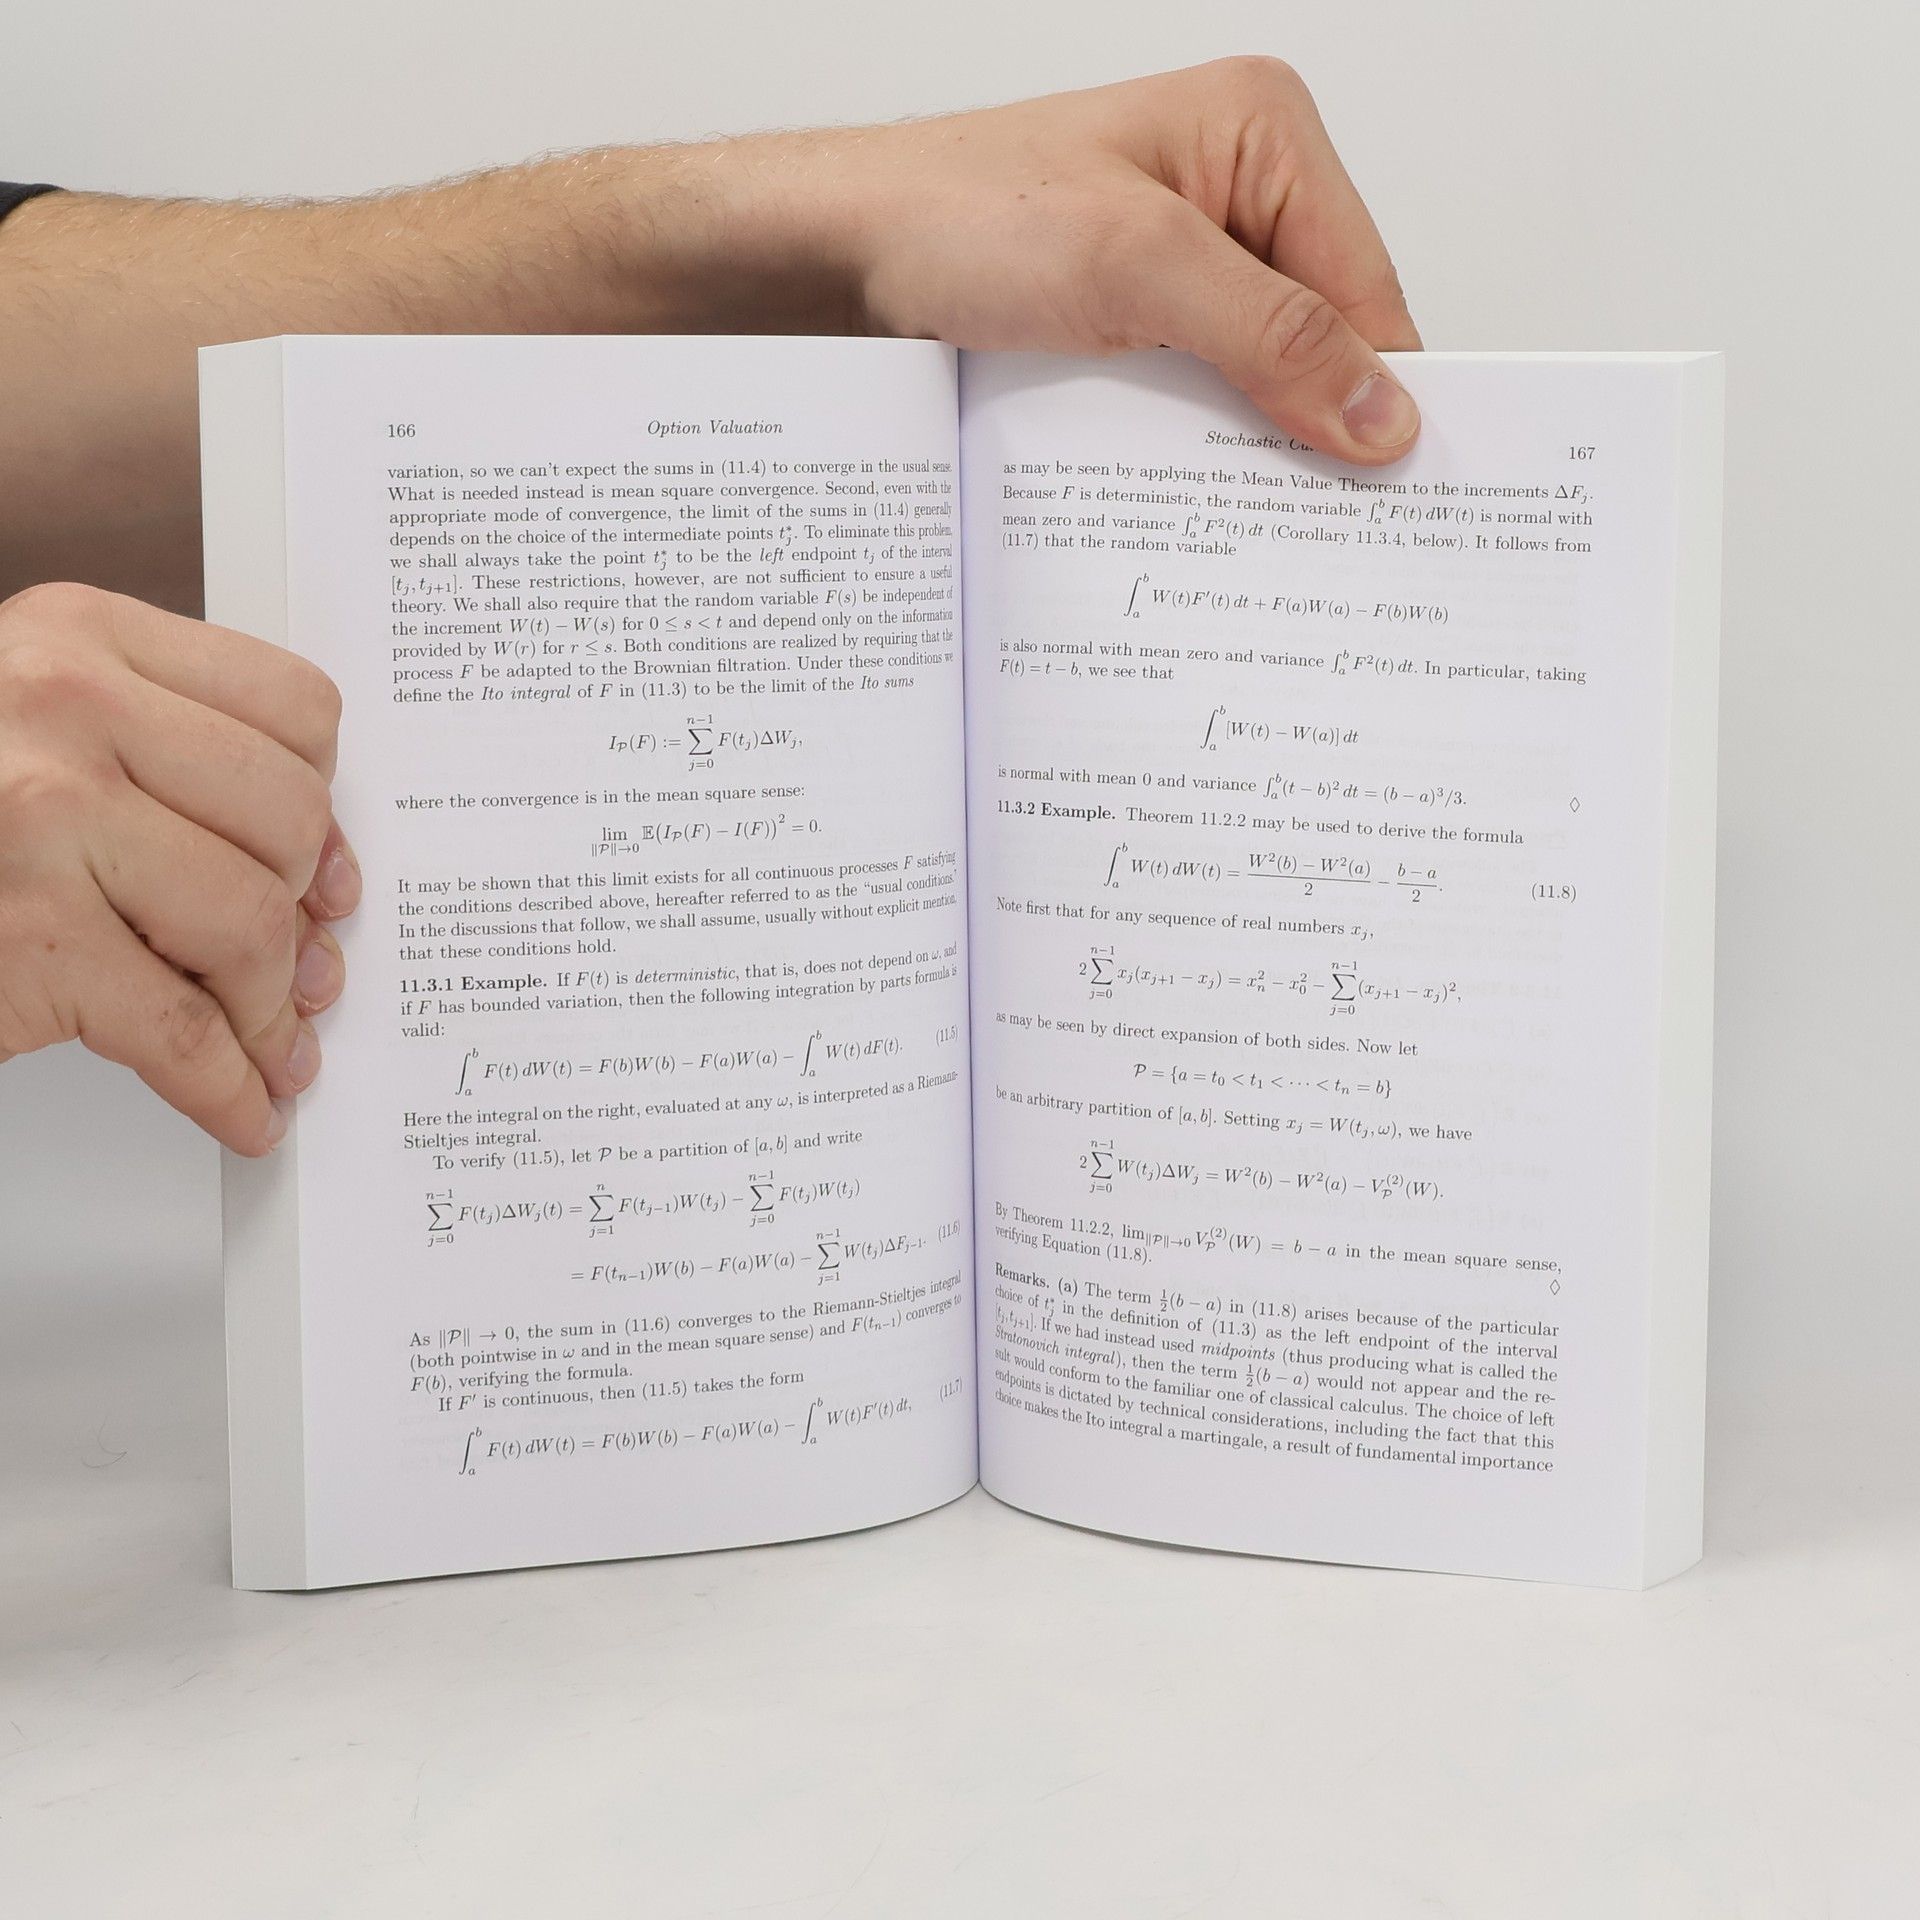 166 Option Valuation
variation, so we can't expect the sums in (11.4) to converge in the usual sense.
What is needed instead is mean square convergence. Second, even with the
appropriate mode of convergence, the limit of the sums in (11.4) generally
depends on the choice of the intermediate points t_j^*. To eliminate this problem,
we shall always take the point t_j^* to be the left endpoint t_j of the interval
[t_j, t_{j+1}]. These restrictions, however, are not sufficient to ensure a useful
theory. We shall also require that the random variable F(s) be independent of
the increment W(t) − W(s) for 0 ≤ s < t and depend only on the information
provided by W(r) for r ≤ s. Both conditions are realized by requiring that the
process F be adapted to the Brownian filtration. Under these conditions we
define the Ito integral of F in (11.3) to be the limit of the Ito sums
I_P(F) := ∑_{j=0}^{n−1} F(t_j)ΔW_j,
where the convergence is in the mean square sense:
lim_{‖P‖→0} 𝔼(I_P(F) − I(F))^2 = 0.
It may be shown that this limit exists for all continuous processes F satisfying
the conditions described above, hereafter referred to as the “usual conditions.”
In the discussions that follow, we shall assume, usually without explicit mention,
that these conditions hold.
11.3.1 Example. If F(t) is deterministic, that is, does not depend on ω, and
if F has bounded variation, then the following integration by parts formula is
valid:
∫_a^b F(t) dW(t) = F(b)W(b) − F(a)W(a) − ∫_a^b W(t) dF(t). (11.5)
Here the integral on the right, evaluated at any ω, is interpreted as a Riemann-
Stieltjes integral.
To verify (11.5), let P be a partition of [a, b] and write
∑_{j=0}^{n−1} F(t_j)ΔW_j(t) = ∑_{j=1}^{n} F(t_{j−1})W(t_j) − ∑_{j=0}^{n−1} F(t_j)W(t_j)
= F(t_{n−1})W(b) − F(a)W(a) − ∑_{j=1}^{n−1} W(t_j)ΔF_{j−1}. (11.6)
As ‖P‖ → 0, the sum in (11.6) converges to the Riemann-Stieltjes integral
(both pointwise in ω and in the mean square sense) and F(t_{n−1}) converges to
F(b), verifying the formula.
If F′ is continuous, then (11.5) takes the form
∫_a^b F(t) dW(t) = F(b)W(b) − F(a)W(a) − ∫_a^b W(t)F′(t) dt, (11.7)
Stochastic 167
as may be seen by applying the Mean Value Theorem to the increments ΔF_j.
Because F is deterministic, the random variable ∫_a^b F(t) dW(t) is normal with
mean zero and variance ∫_a^b F^2(t) dt (Corollary 11.3.4, below). It follows from
(11.7) that the random variable
∫_a^b W(t)F′(t) dt + F(a)W(a) − F(b)W(b)
is also normal with mean zero and variance ∫_a^b F^2(t) dt. In particular, taking
F(t) = t − b, we see that
∫_a^b [W(t) − W(a)] dt
is normal with mean 0 and variance ∫_a^b (t − b)^2 dt = (b − a)^3/3. ◇
11.3.2 Example. Theorem 11.2.2 may be used to derive the formula
∫_a^b W(t) dW(t) = (W^2(b) − W^2(a))/2 − (b − a)/2. (11.8)
Note first that for any sequence of real numbers x_j,
2∑_{j=0}^{n−1} x_j(x_{j+1} − x_j) = x_n^2 − x_0^2 − ∑_{j=0}^{n−1} (x_{j+1} − x_j)^2,
as may be seen by direct expansion of both sides. Now let
P = {a = t_0 < t_1 < ··· < t_n = b}
be an arbitrary partition of [a, b]. Setting x_j = W(t_j, ω), we have
2∑_{j=0}^{n−1} W(t_j)ΔW_j = W^2(b) − W^2(a) − V_P^{(2)}(W).
By Theorem 11.2.2, lim_{‖P‖→0} V_P^{(2)}(W) = b − a in the mean square sense,
verifying Equation (11.8). ◇
Remarks. (a) The term ½(b − a) in (11.8) arises because of the particular
choice of t_j^* in the definition of (11.3) as the left endpoint of the interval
[t_j, t_{j+1}]. If we had instead used midpoints (thus producing what is called the
Stratonovich integral), then the term ½(b − a) would not appear and the re-
sult would conform to the familiar one of classical calculus. The choice of left
endpoints is dictated by technical considerations, including the fact that this
choice makes the Ito integral a martingale, a result of fundamental importance